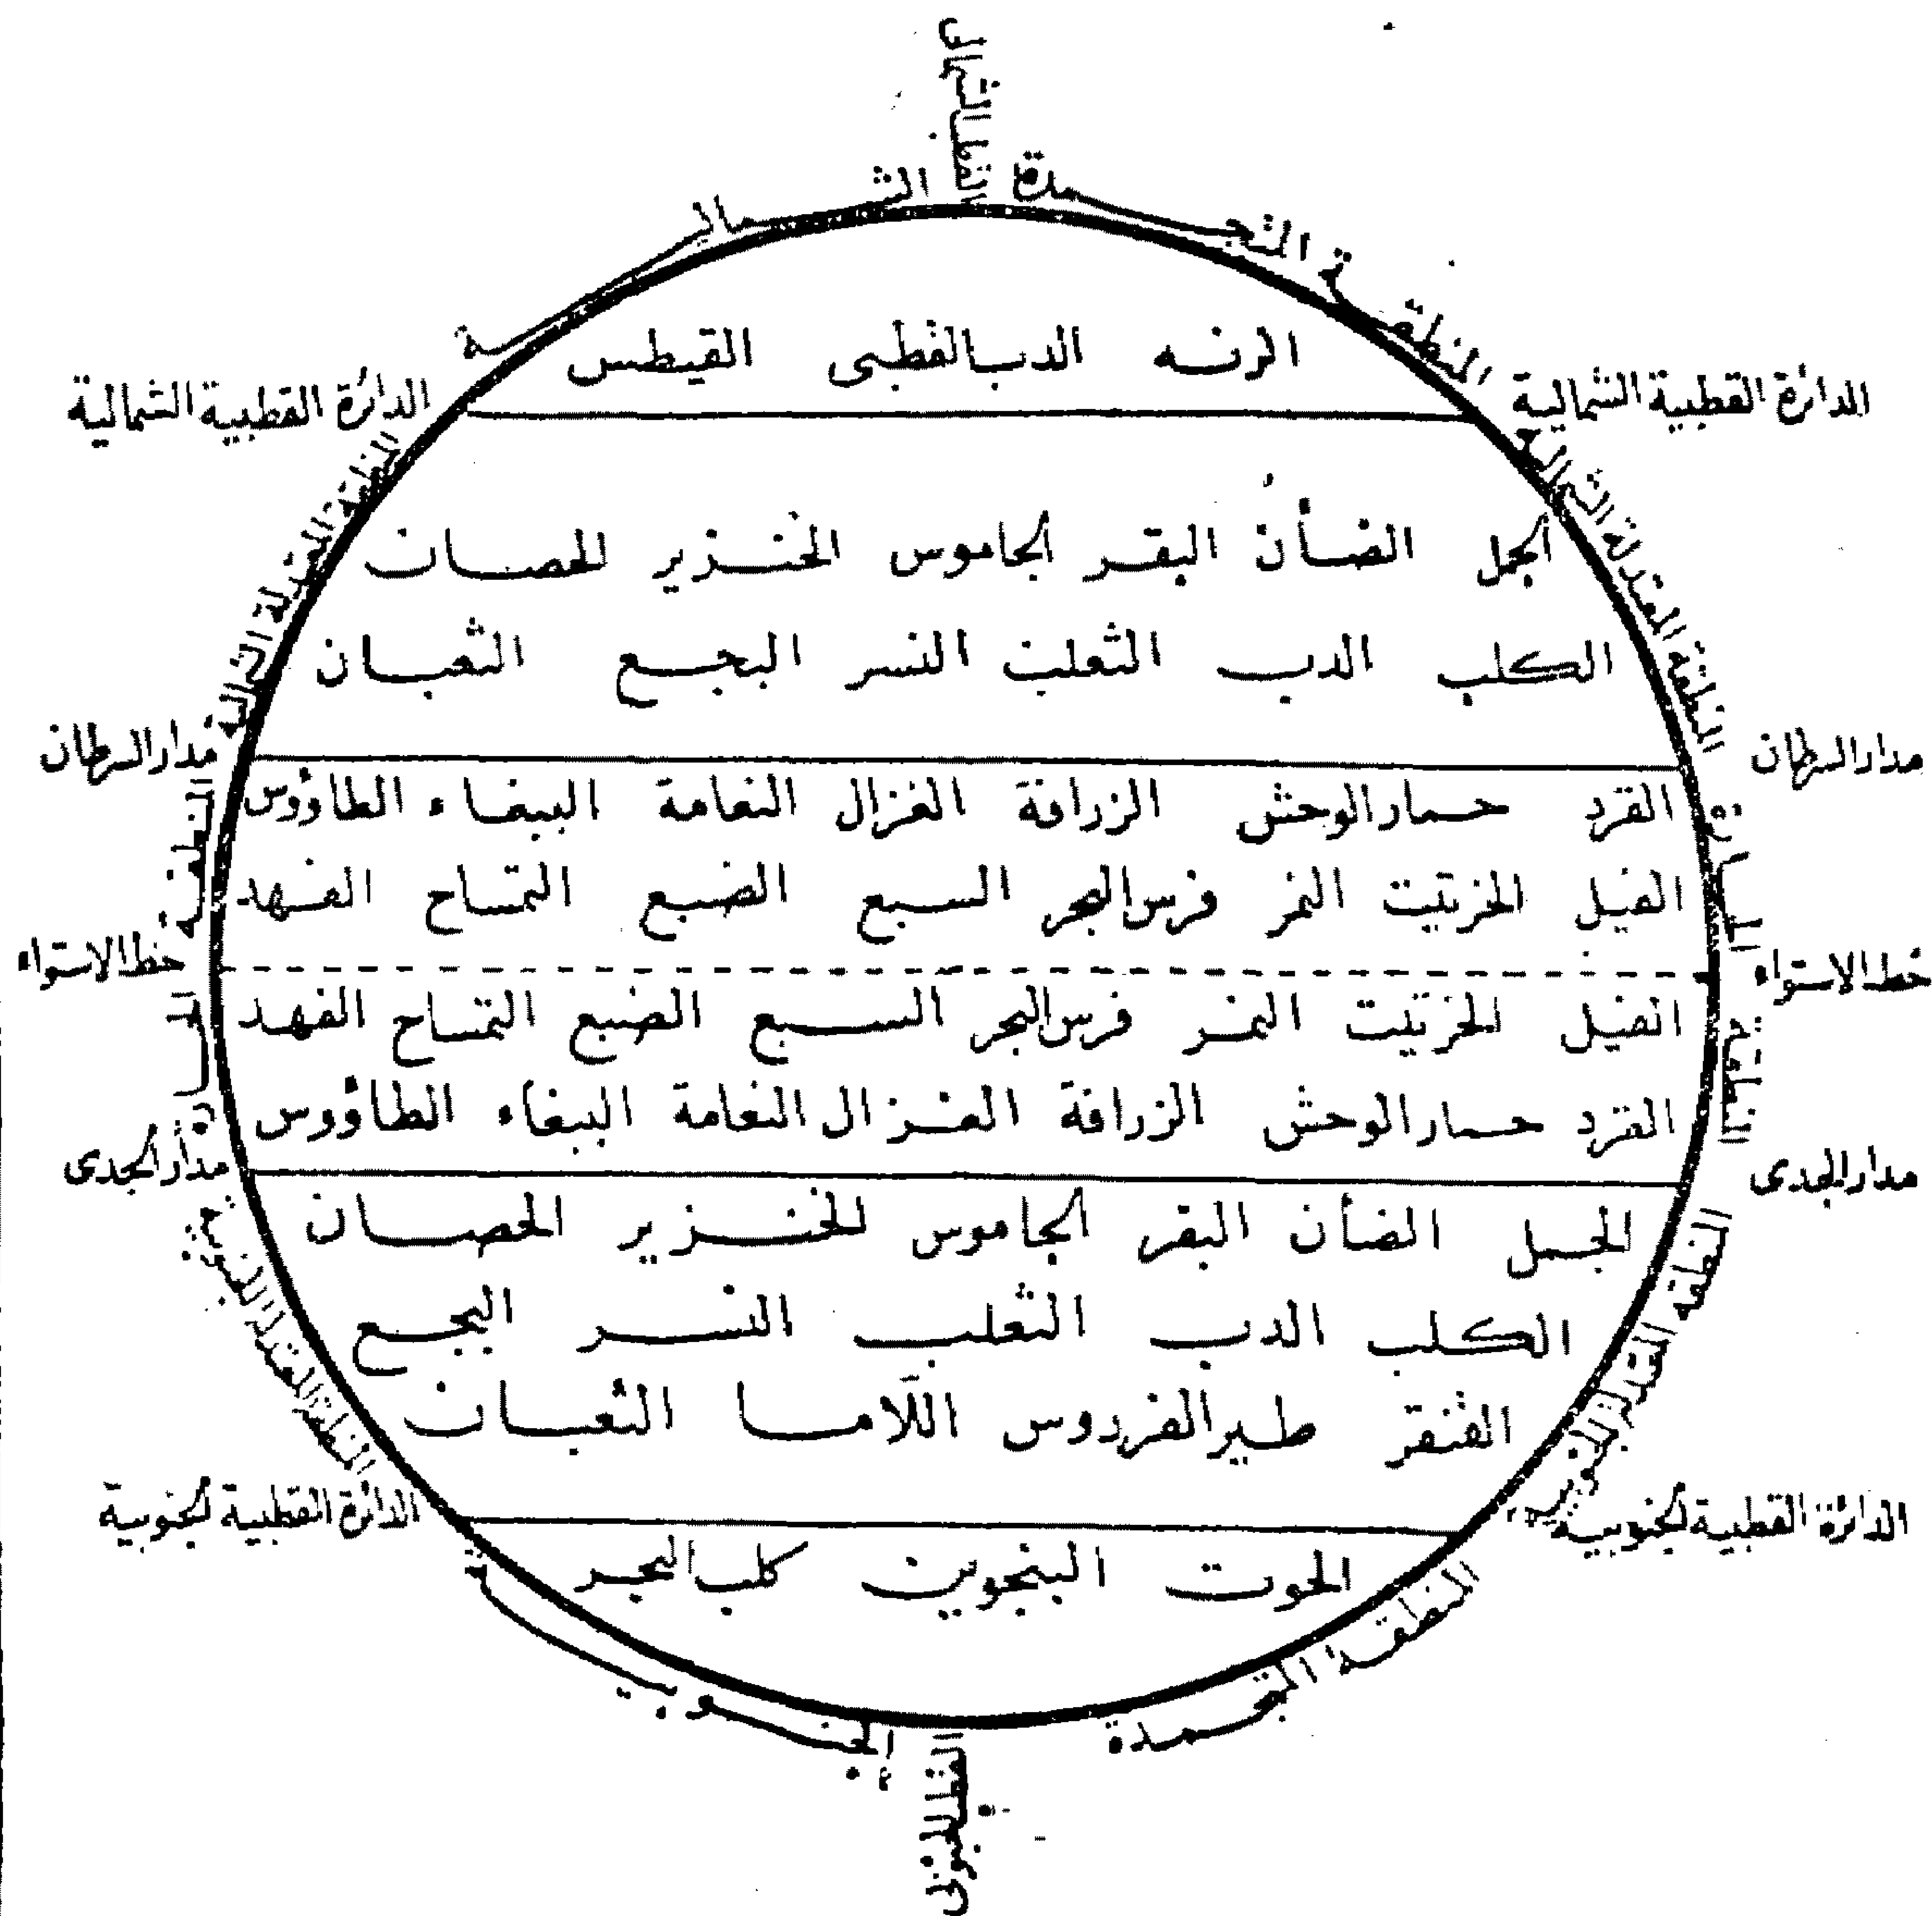 القطب الشمالى
المنطقة المتجمدة الشمالية
الرنه الدب القطبى القيطس
الدائرة القطبية الشمالية
الدائرة القطبية الشمالية
المنطقة المعتدلة الشمالية
المنطقة المعتدلة الشمالية
الجمل الضأن البقر الجاموس الخنزير الحصان
الكلب الدب الثعلب النسر البجع الثعبان
مدار السرطان
مدار السرطان
القرد حمار الوحش الزرافة الغزال النعامة الببغاء الطاؤوس
الفيل الخرتيت النمر فرس البحر السبع الضبع التمساح الفهد
خط الاستواء
خط الاستواء
المنطقة الحارة
المنطقة الحارة
الفيل الخرتيت النمر فرس البحر السبع الضبع التمساح الفهد
القرد حمار الوحش الزرافة الغزال النعامة الببغاء الطاؤوس
مدار الجدى
مدار الجدى
الجمل الضأن البقر الجاموس الخنزير الحصان
الكلب الدب الثعلب النسر البجع
القنقر طير الفردوس اللاما الثعبان
المنطقة المعتدلة الجنوبية
المنطقة المعتدلة الجنوبية
الدائرة القطبية الجنوبية
الدائرة القطبية الجنوبية
الحوت البنجوين كلب البحر
المنطقة المتجمدة الجنوبية
القطب الجنوبى